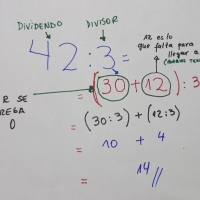 DIVIDENDO
DIVISOR
42:3=
12 es lo
que falta para
llegar a
= (30+12):3
R SE
REGA
0
= (30:3)+(12:3)
= 10 + 4
= 14//